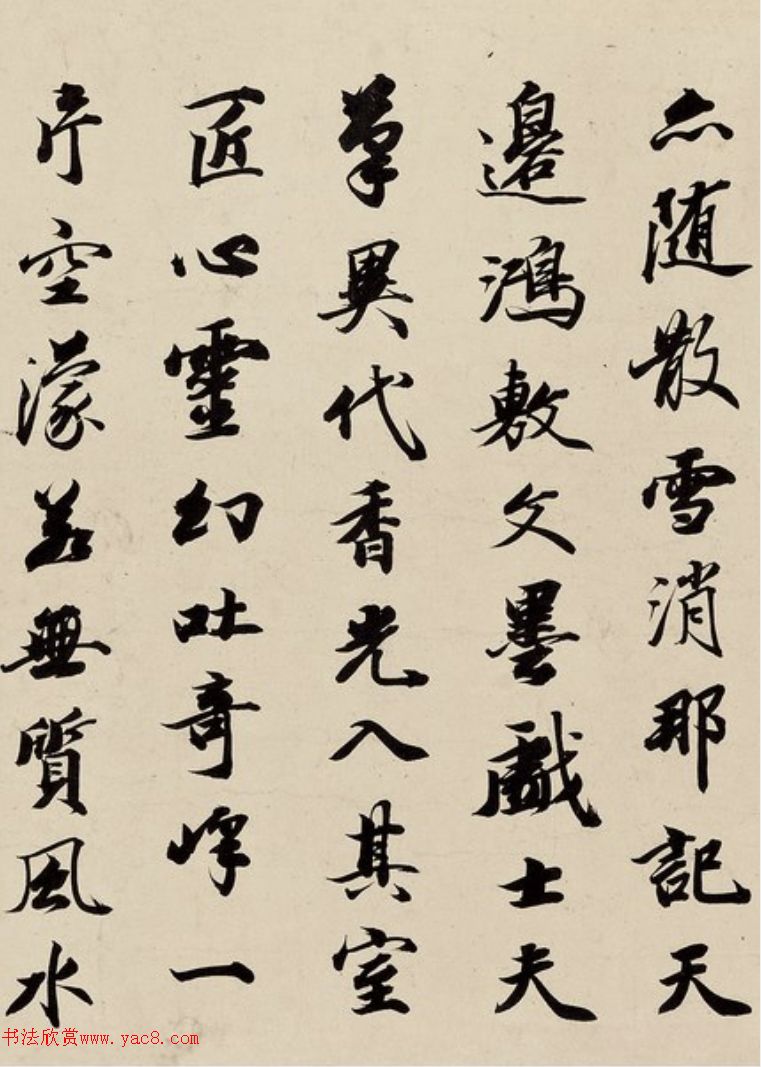 亦随散雪消那記天
邊鴻敷文墨戲士夫
筆異代香光入其室
匠心靈幻吐奇峰一
片空濛若無質風水
书法欣赏www.yac8.com